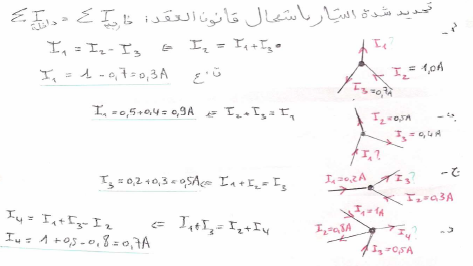 تحديد شدة التيار باستعمال قانون العقد: خارجة ΣI = داخلة ΣI
أ-
I₁ = I₂ - I₃ ⇐ I₂ = I₁ + I₃
I₁ = 1 - 0,7 = 0,3A ت ع
I₁?
I₂ = 1,0A
I₃ = 0,7A
ب-
I₁ = 0,5 + 0,4 = 0,9A ⇐ I₂ + I₃ = I₁
I₂ = 0,5A
I₃ = 0,4A
I₁?
ج-
I₃ = 0,2 + 0,3 = 0,5A ⇐ I₁ + I₂ = I₃
I₁ = 0,2A
I₃?
I₂ = 0,3A
د-
I₄ = I₁ + I₃ - I₂ ⇐ I₁ + I₃ = I₂ + I₄
I₄ = 1 + 0,5 - 0,8 = 0,7A
I₁ = 1A
I₂ = 0,8A
I₄?
I₃ = 0,5A